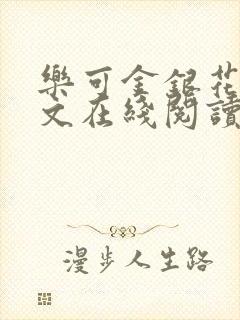 樂可金銀花
文在綫閱讀
漫步人生路